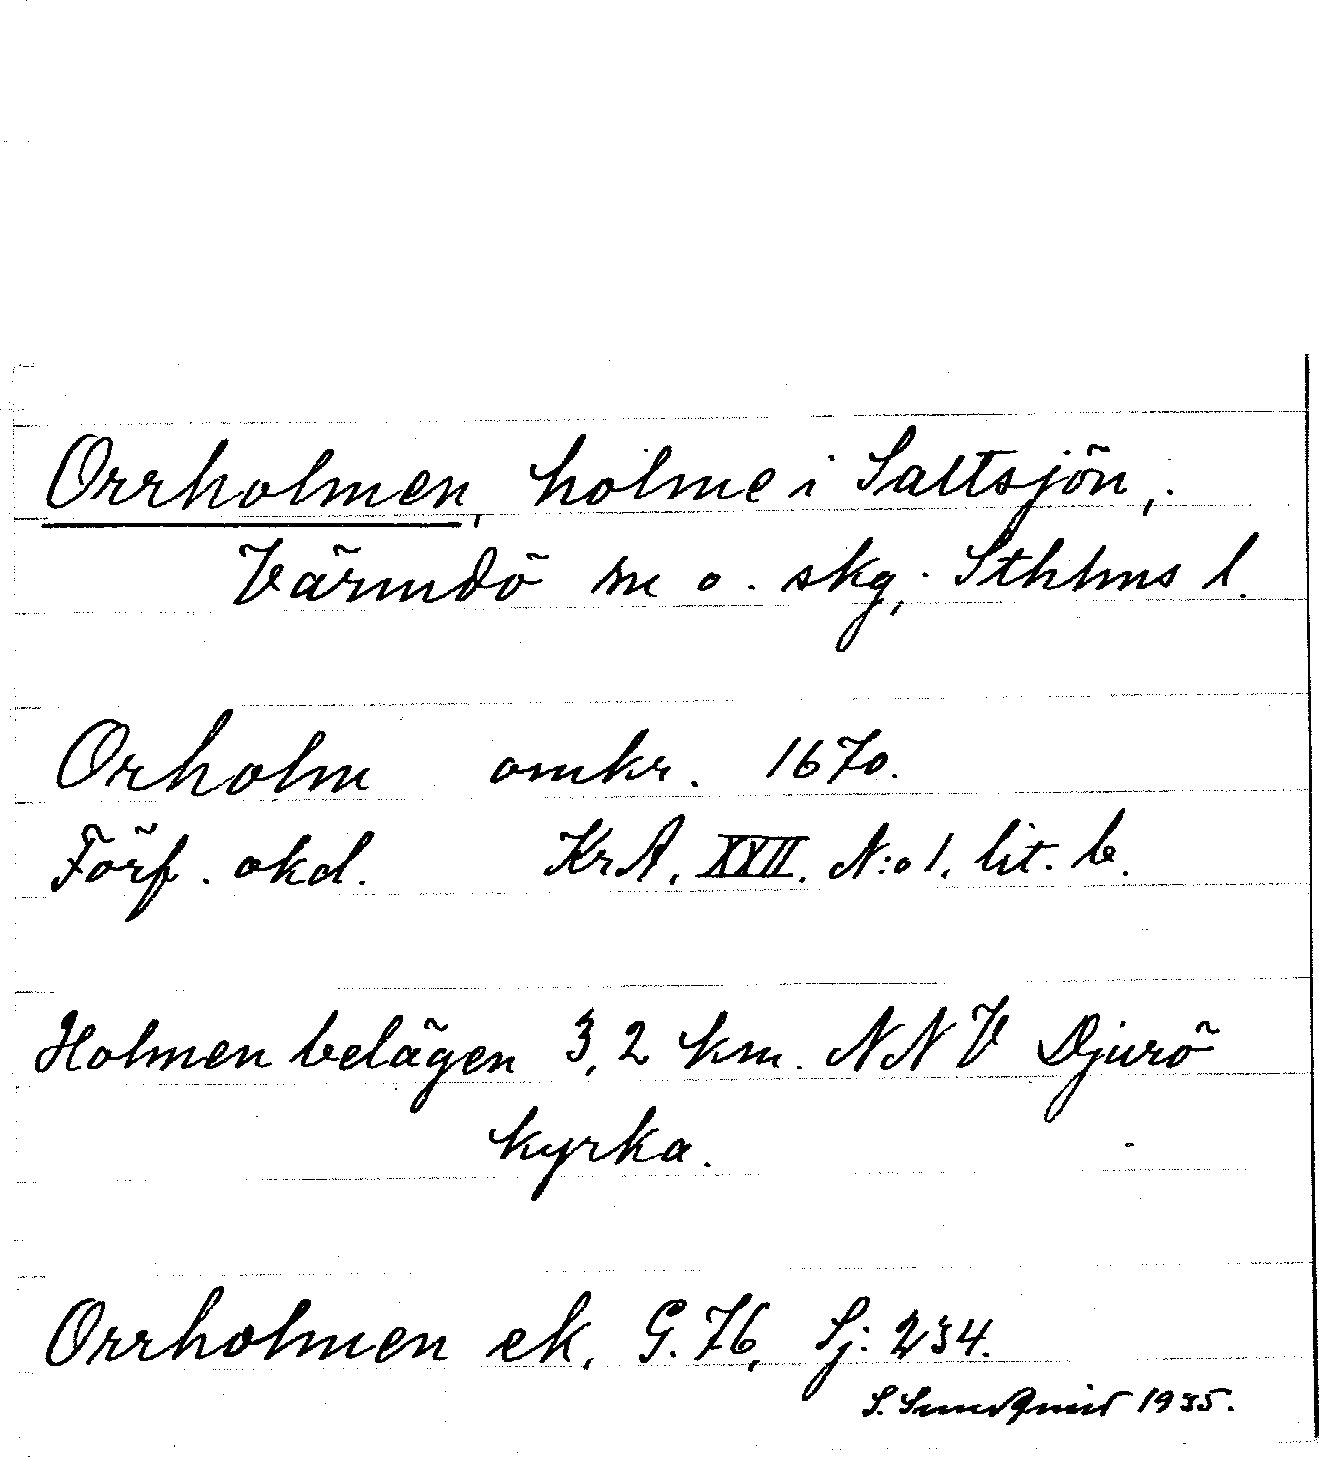 Orrholmen, holme i Saltsjön,
Värmdö sn o. skg, Sthlms l.
Orholm omkr. 1670.
Förf. okd. KrA, XXII. N:o 1. lit. b.
Holmen belägen 3,2 km. NNV Djurö
kyrka.
Orrholmen ek. G. 76, Sj: 234.
S. Sundquist 1935.